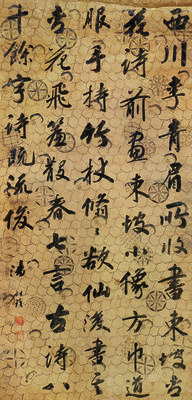 西川李青眉所收書東坡杏
花詩前畫東坡小像方巾道
服手持竹杖翛翛欲仙後書其
杏花飛簾散春七言古詩八
十餘字詩既流俊